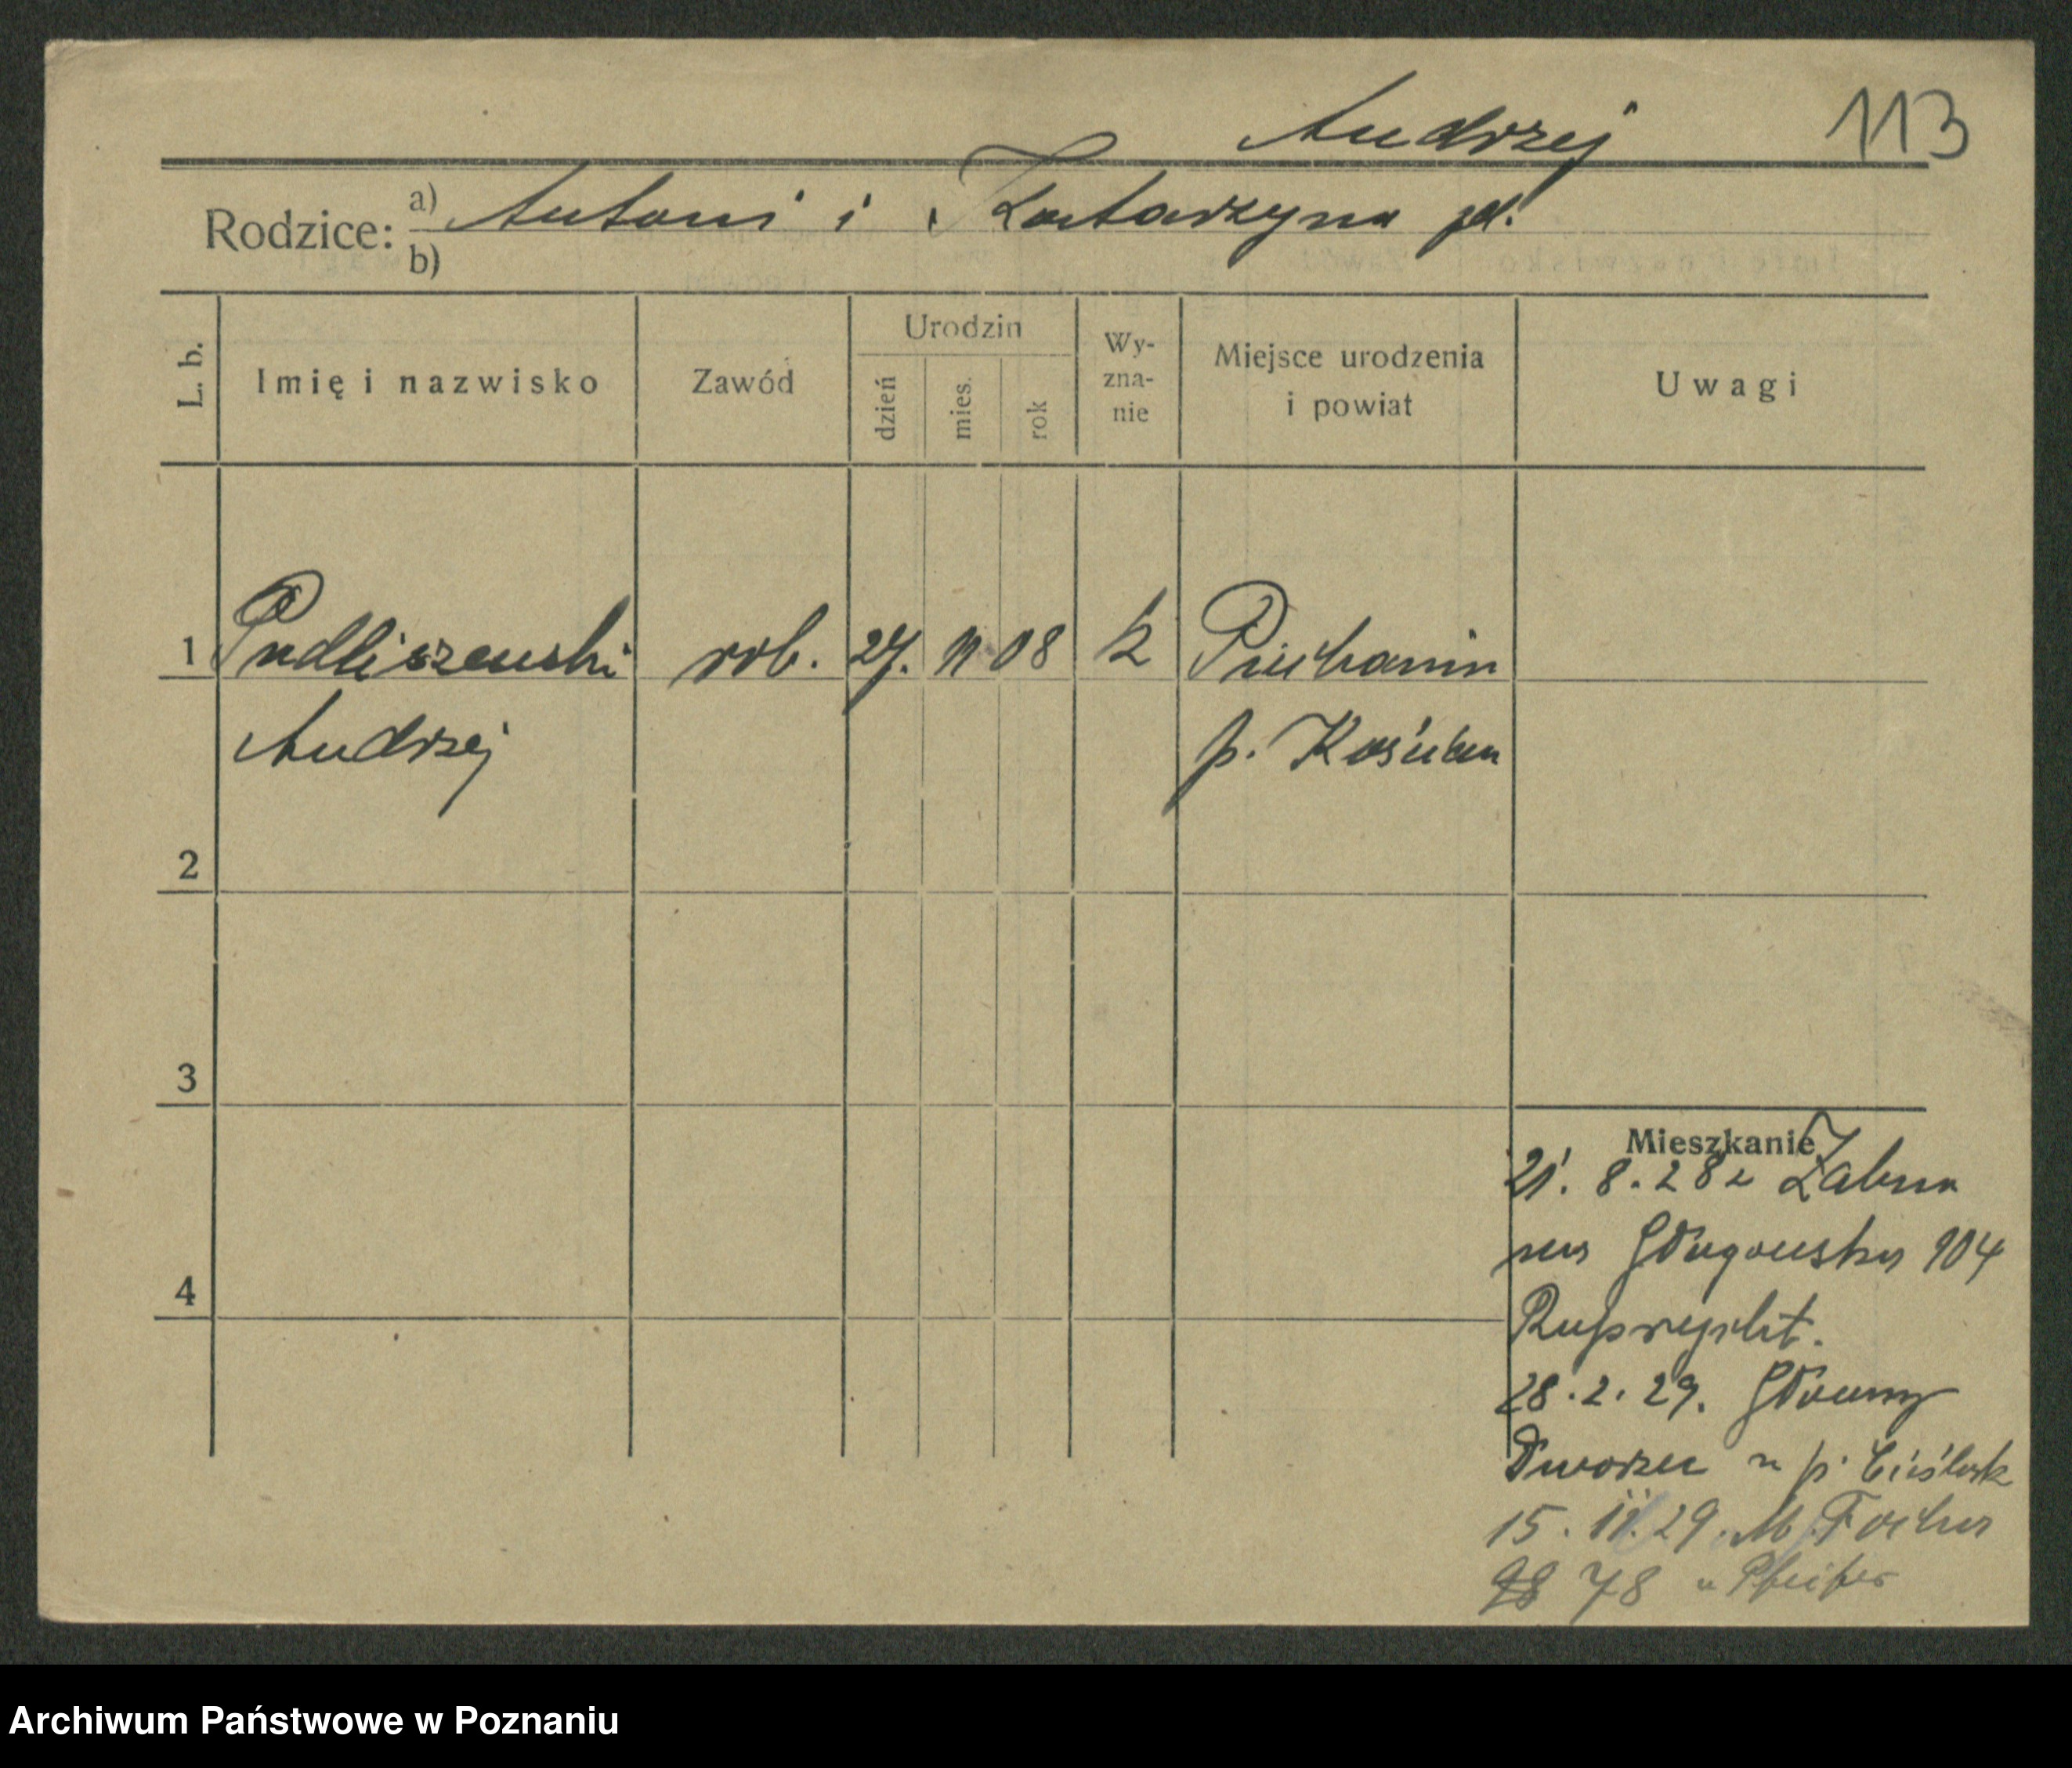 Andrzej 113
Rodzice: a) Antoni i Katarzyna zd.
b)
L. b. Imię i nazwisko Zawód Urodzin dzień mies. rok Wy-zna-nie Miejsce urodzenia i powiat Uwagi
1 Pudliszewski rob. 27. 11 08 k
Andrzej p. Kościan
2
3
4
Mieszkanie
21. 8. 28 z Żabna
na Głogowska 104
28. 2. 29. Główny
Dworzec u p. Cieślak
15. 11. 29. M. Focha
78 u Pfeifer
Archiwum Państwowe w Poznaniu